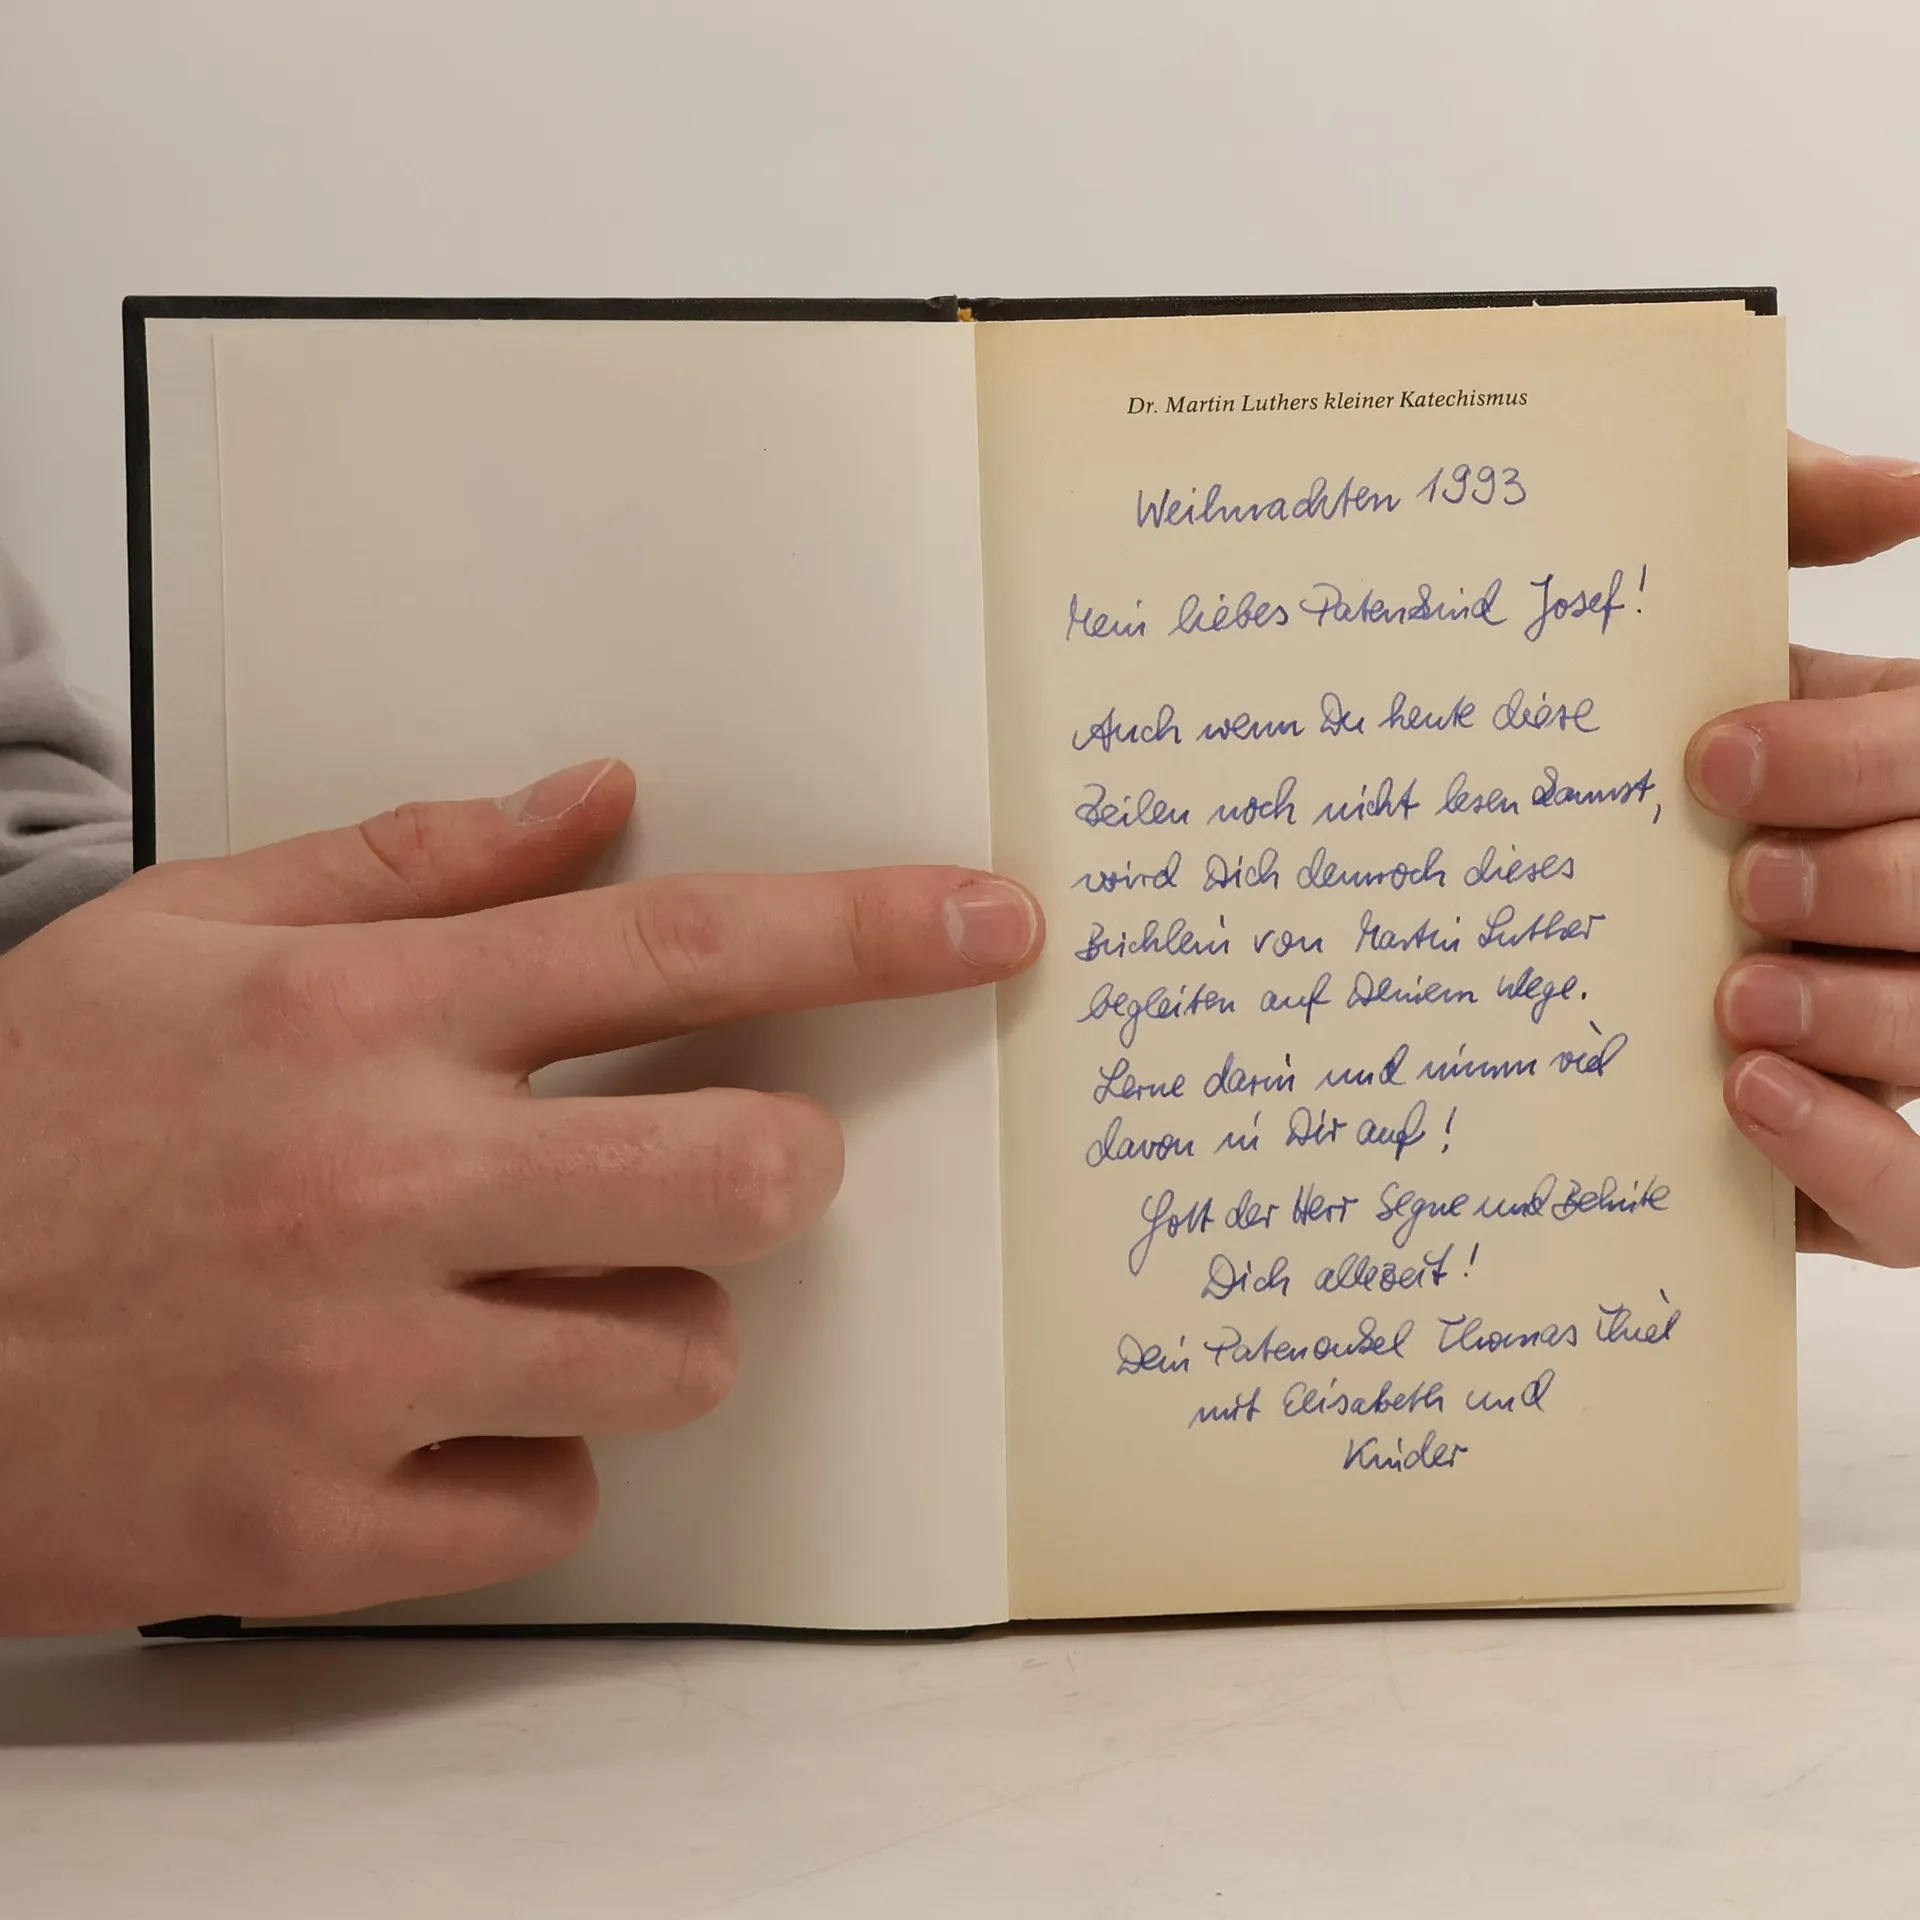 Dr. Martin Luthers kleiner Katechismus
Weihnachten 1993
Mein liebes Patenkind Josef!
Auch wenn Du heute diese
Zeilen noch nicht lesen kannst,
wird Dich dennoch dieses
Büchlein von Martin Luther
begleiten auf Deinem Wege.
Lerne darin und nimm viel
davon in Dir auf!
Gott der Herr Segne und Behüte
Dich allezeit!
Dein Patenonkel Thomas Thiel
mit Elisabeth und
Kinder